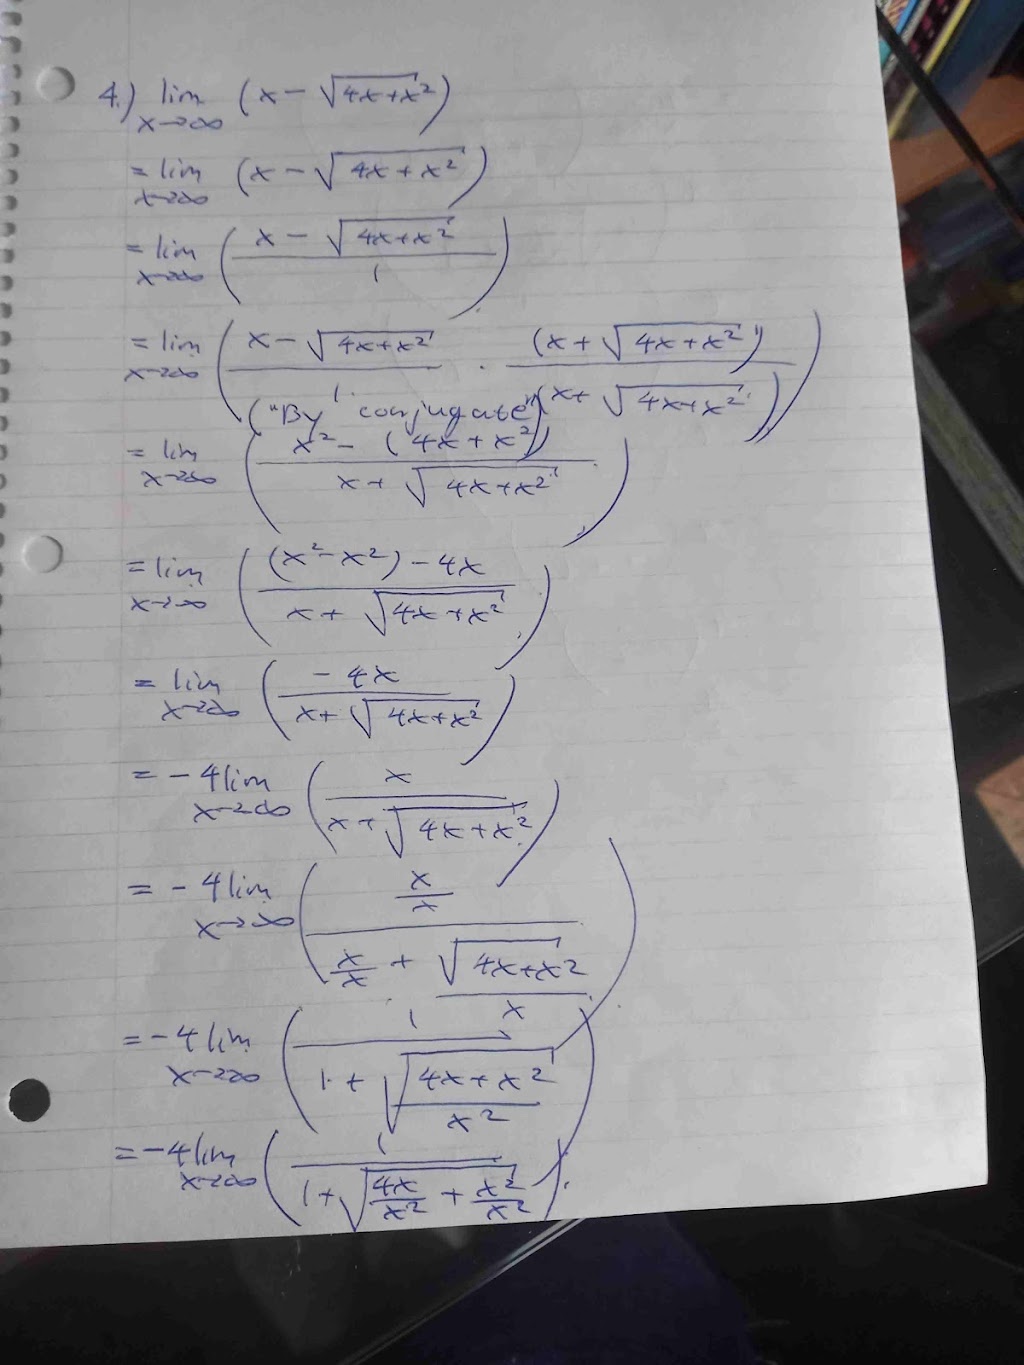 4.) lim x→∞ (x − √(4x+x²))
= lim x→∞ (x − √(4x+x²))
= lim x→∞ ((x − √(4x+x²))/1)
= lim x→∞ ((x − √(4x+x²))/1 · (x + √(4x+x²))/(x + √(4x+x²)))
("By conjugate")
= lim x→∞ ((x² − (4x+x²))/(x + √(4x+x²)))
= lim x→∞ (((x² − x²) − 4x)/(x + √(4x+x²)))
= lim x→∞ (−4x/(x + √(4x+x²)))
= −4 lim x→∞ (x/(x + √(4x+x²)))
= −4 lim x→∞ ((x/x)/(x/x + √(4x+x²)/x))
= −4 lim x→∞ (1/(1 + √((4x+x²)/x²)))
= −4 lim x→∞ (1/(1 + √(4x/x² + x²/x²)))